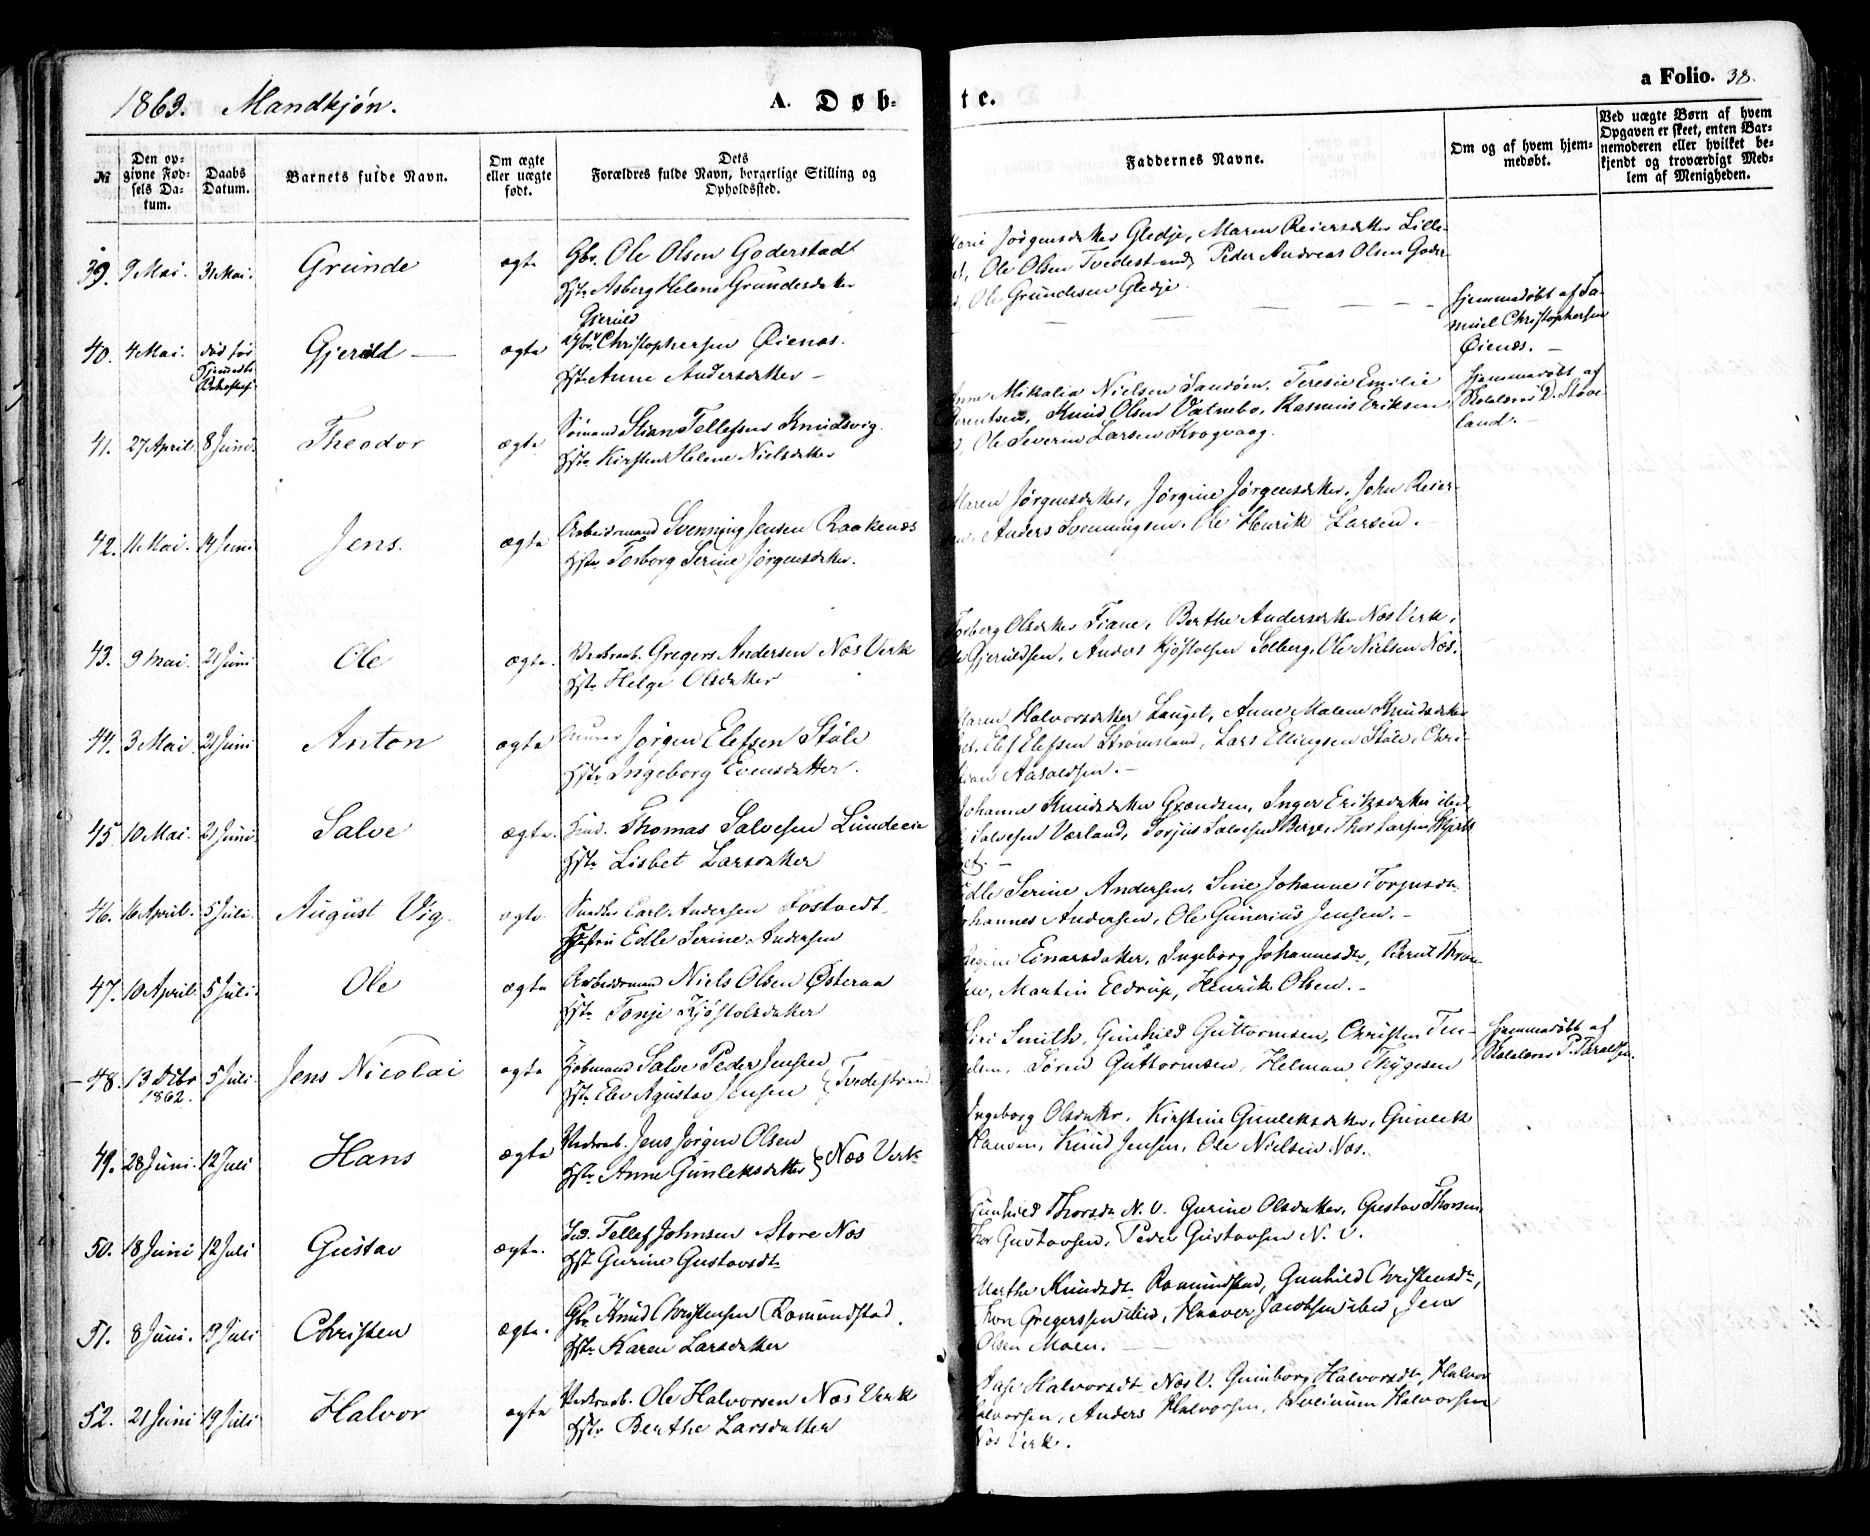 1863. Mandkjøn.
A. Døb-
te.
a Folio. 38.
№
Den op-
givne Fød-
sels Da-
tum.
Daabs
Datum.
Barnets fulde Navn.
Om ægte
eller uægte
født.
Dets
Forældres fulde Navn, borgerlige Stilling og
Opholdssted.
Faddernes Navne.
Om og af hvem hjem-
medøbt.
Ved uægte Børn af hvem
Opgaven er skeet, enten Bar-
nemoderen eller hvilket be-
kjendt og troværdigt Med-
lem af Menigheden.
39. 9 Mai. 31 Mai. Grunde ægte Gbr. Ole Olsen Goderstad
Hstr. Asberg Helene Grundesdatter
Jørgensdatter Gledje, Maren Reiersdatter Lille-
Ole Olsen Tvedestrand, Peder Andreas Olsen Goder-
Ole Grundesen Gledje.
40. 4 Mai. død før Gjeruld — ægte Gjeruld
Gbr. Christophersen Øienæs.
Hstr. Anne Andersdatter —
Hjemmedøbt af Sa-
muel Christophersen
Øienæs. —
41. 27 April. 8 Juni. Theodor ægte Sømand Stian Tellefsen Knudsvig.
Hstr. Kirsten Helene Nielsdatter
Anne Mikalia Nielsen Sandøen. Teresie Emilie
Berentsen, Knud Olsen Valnebo, Rasmus Eriksen
Ole Severin Larsen Krogvaag.
Hjemmedøbt af
Skolelærer D. Stave-
land. —
42. 11 Mai. 14 Juni Jens. ægte Arbeidsmand Svenning Jensen Raakenæs
Hstr. Torborg Serine Jørgensdatter.
Maren Jørgensdatter, Jørgine Jørgensdatter, John Reier-
Anders Svenningsen. Ole Henrik Larsen.
43. 9 Mai. 21 Juni Ole ægte. Verksarb. Gregers Andersen Næs Verk
Hstr. Helge Olsdatter
Torberg Olsdatter Fiane, Berthe Andersdatter Næs Verk,
Gjeruldsen, Anders Kjøstolsen Solberg, Ole Nielsen Næs.
44. 3 Mai 21 Juni Anton ægte Jørgen Elefsen Støle
Hstr. Ingeborg Evensdatter.
Maren Halvorsdatter Lauget, Anne Malene Knudsdatter
Elef Elefsen Strømsland, Lars Ellingsen Støle, Chri-
stian Aasoldsen. —
45 10 Mai. 21 Juni. Salve ægte. Thomas Salvesen Lundeeie
Hstr. Lisbet Larsdatter
Johanne Knudsdatter Grændsen, Inger Eriksdatter ibid.
Salvesen Værland, Torjus Salvesen Berge, Thor Larsen
46. 16 April. 5 Juli. August Vig. ægte Carl Andersen Fostvedt
Hustru Edle Serine Andersen
Edle Serine Andersen, Sine Johanne Torjusdtr.
Johannes Andersen, Ole Gunerius Jensen. —
47. 10 April. 5 Juli. Ole ægte Arbeidsmand Niels Olsen Østeraa
Hstr. Tonje Kjøstolsdatter
Regine Einarsdatter, Ingeborg Johannesdtr, Bernt Thron
Martin Eldrup, Henrik Olsen. —
48. 13 Dcbr 5 Juli. Jens Nicolai ægte Kobmand Salve Peder Jensen
1862.
Hstr. Elev Agustav Jensen } Tvedestrand
Siri Smith, Gunhild Guttormsen, Christen Ten-
Søren Guttormsen, Helman Thygesen
Hjemmedøbt af
Skolelærer P. Taraldsen.
49. 28 Juni. 12 Juli Hans ægte Verksarb. Jens Jørgen Olsen
Hstr. Anne Gunleksdatter } Næs Verk
Ingeborg Olsdatter, Kirstine Gunleksdatter, Gunleik
Knud Jensen, Ole Nielsen Næs.
50. 18 Juni 12 Juli Gustav ægte. Ind. Tellef Johnsen Store Næs
Hst Gurine Gustavsdtr
Gunhild Thorsdtr N. V. Gurine Olsdatter, Gustav Thorsen
Thor Gustavsen, Peder Gustavsen N. V.
51. 8 Juni. 19 Juli Christen ægte. Gbr. Knud Christensen Romundstad.
Hstr. Karen Larsdatter
Marthe Knudsdtr Romundstad, Gunhild Christensdtr,
Gregerssen ibid, Halvor Jacobsen ibid, Jens
Olsen Moen.
52. 21 Juni 19 Juli Halvor ægte Verksarb. Ole Halvorsen Næs Verk
Hstr Berthe Larsdatter
Aase Halvorsdtr Næs V. Gunborg Halvorsdtr, Halvor
Halvorsen, Anders Halvorsen, Sveinum Halvorsen
Næs Verk.